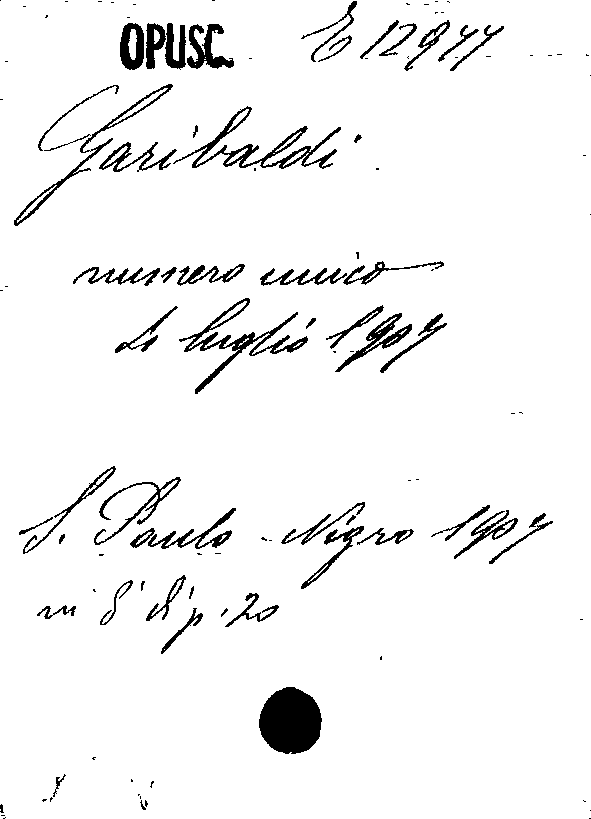 OPUSC. E 12977
Garibaldi
numero unico
4 luglio 1907
S. Paulo - Nigro 1907
in 8° di p. 20